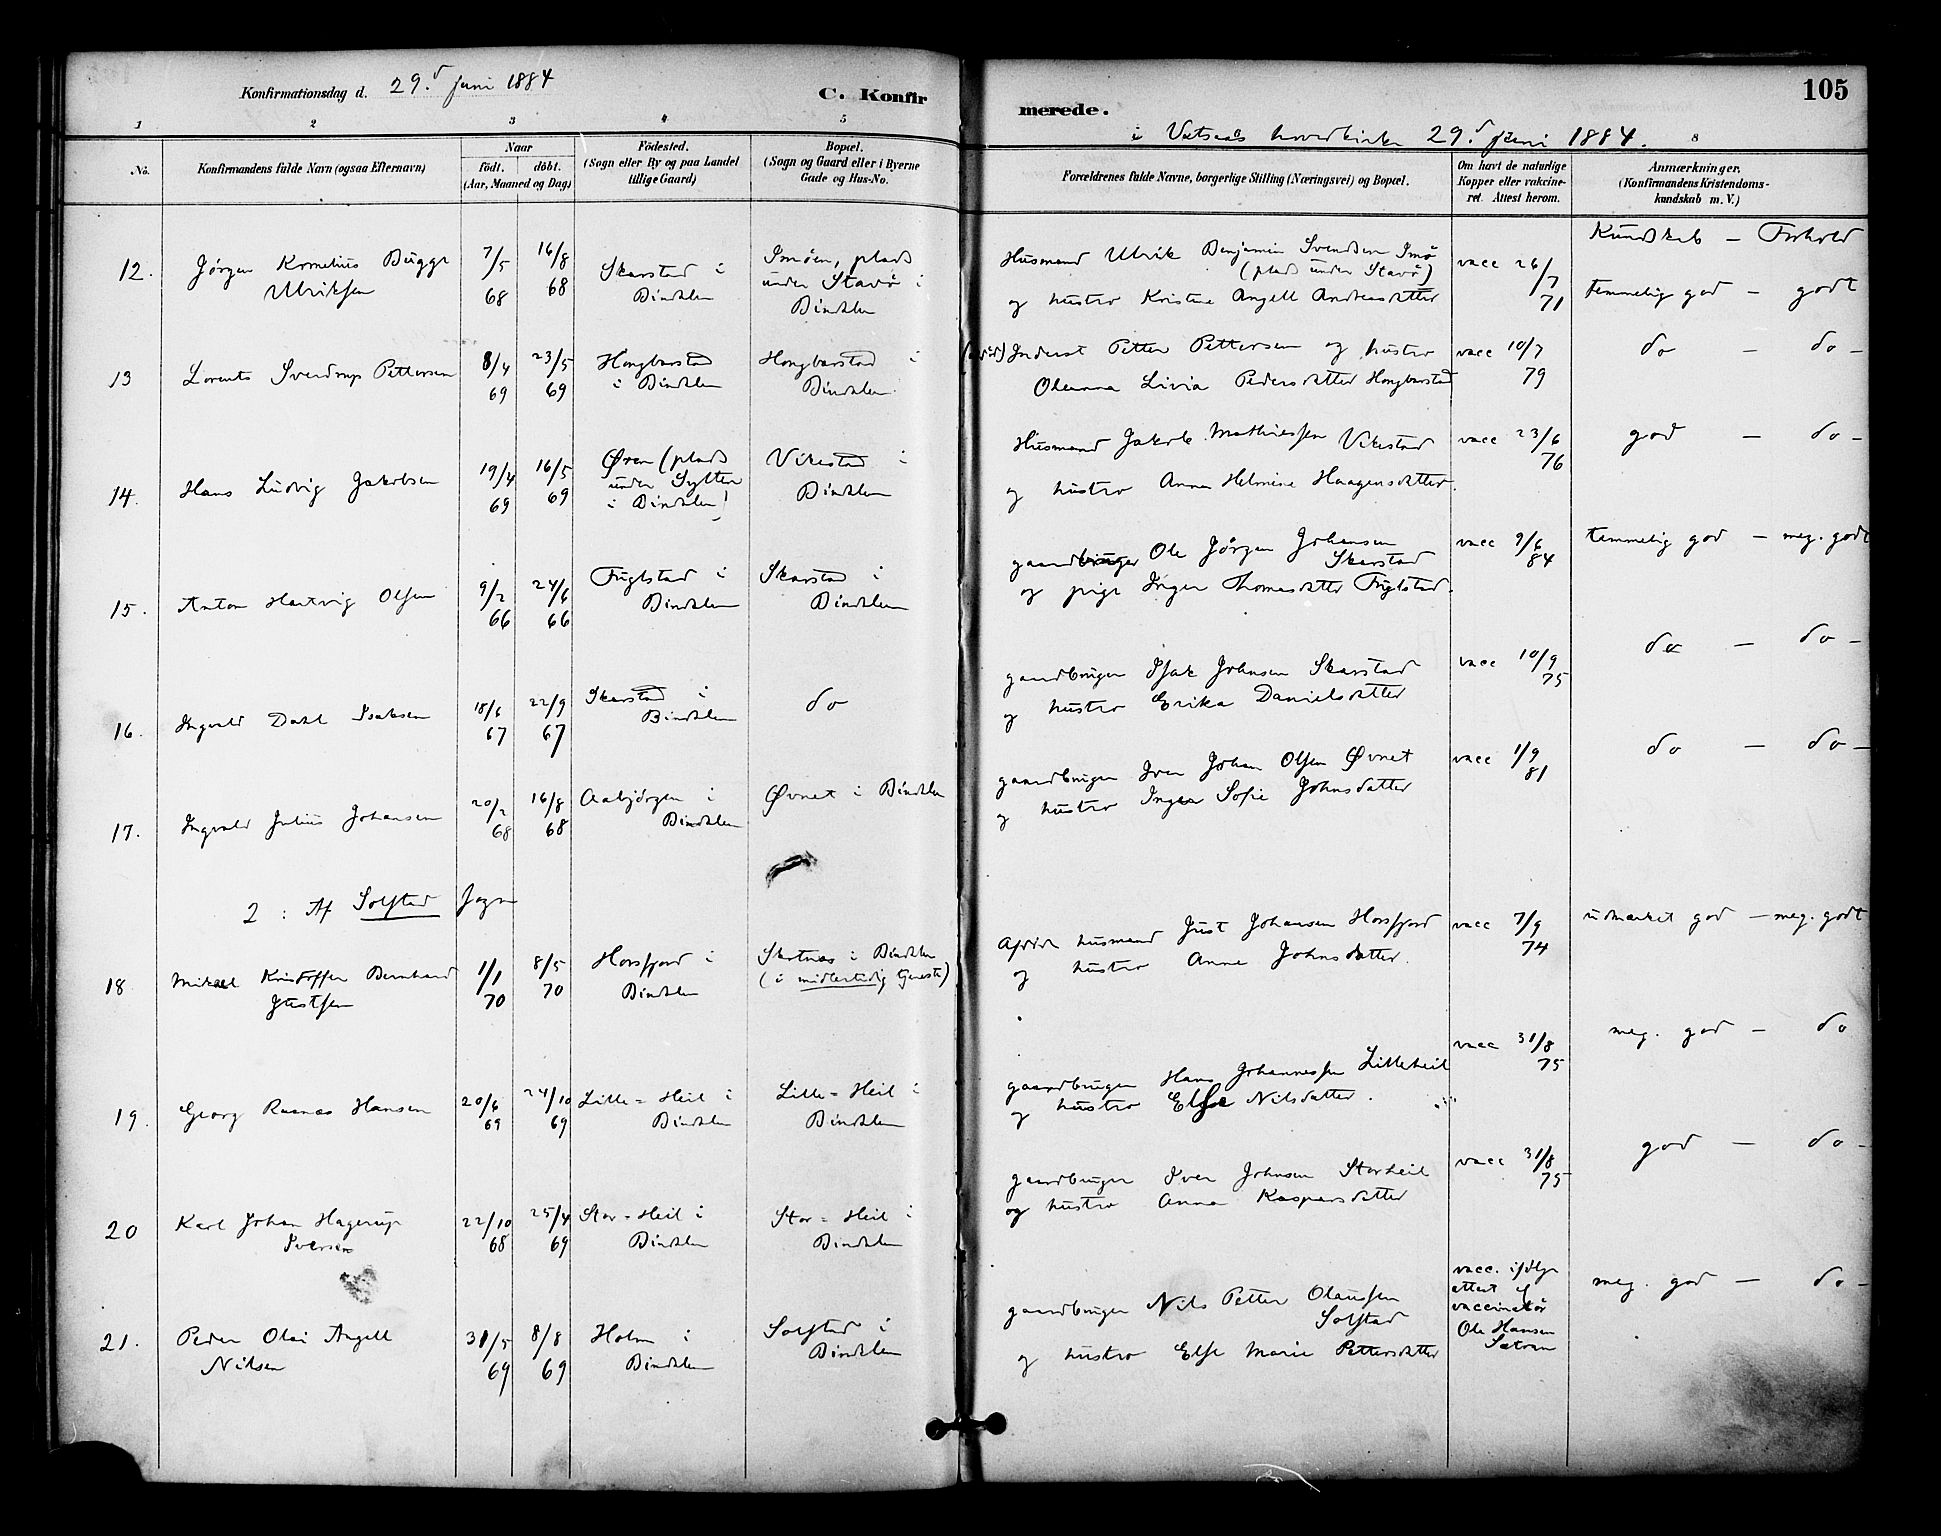 Konfirmationsdag d. 29.d Juni 1884
C. Konfir
merede.
105
i Vatsaas hovedkirke 29.d Juni 1884.
1 2 3 4 5
8
No.
Konfirmandens fulde Navn (ogsaa Efternavn)
Naar
födt. döbt.
(Aar, Maaned og Dag)
Födested.
(Sogn eller By og paa Landet
tillige Gaard)
Bopæl.
(Sogn og Gaard eller i Byerne
Gade og Hus-No.
Forældrenes fulde Navne, borgerlige Stilling (Næringsvei) og Bopæl.
Om havt de naturlige
Kopper eller vakcine-
ret. Attest herom.
Anmærkninger.
(Konfirmandens Kristendoms-
kundskab m. V.)
Kundskab — Forhold
12. Jørgen Kornelius Bugge
Ulriksen
7/5
68
16/8
68
Skarstad i
Bindalen
Imøen, plads
under Stavø i
Bindalen
Husmand Ulrik Benjamin Svendsen Imø
(plads under Stavø)
og hustro Kristine Angell Andreasdatter
vacc 26/7
71
temmelig god — godt
13 Lorents Sverdrup Pettersen
8/4
69
23/5
69
Hongbarstad
i Bindalen
Hongbarstad i
Bindalen
Inderst Petter Pettersen og hustro
Oleanna Livia Pedersdatter Hongbarstad
vacc 10/7
79
do — do —
14. Hans Ludvig Jakobsen
19/4
69
16/5
69
Øren (plads
under Sytter
i Bindalen)
Vikestad i
Bindalen
Husmand Jakob Mathiessen Vikestad
og hustro Anna Helmine Haagensdatter.
vacc 23/6
76
god — do —
15. Anton Hartvig Olsen
9/2
66
24/6
66
Fuglstad i
Bindalen
Skarstad i
Bindalen
gaardbruger Ole Jørgen Johansen
Skarstad
og pige Inger Thomasdatter Fuglstad.
vacc 9/6
84
temmelig god — meg. godt
16. Ingvald Dahl Isaksen
18/6
67
22/9
67
Skarstad i
Bindalen
do
gaardbruger Isak Johnsen Skarstad
og hustro Erika Danielsdatter
vacc 10/9
75
do — do —
17. Ingvald Julius Johansen
20/2
68
16/8
68
Aabjørgen i
Bindalen
Øvnet i Bindalen
gaardbruger Iver Johan Olsen Øvnet
og hustro Inger Sofie Johnsdatter
vacc 1/9
81
do — do —
2 : Af Solstad Sogn
18 Mikael Kristoffer Bernhard
Justsen
1/1
70
8/5
70
Horsfjord i
Bindalen
Skotnes i Bindalen
(i midlertidig tjeneste)
Afdøde husmand Just Johansen Horsfjord
og hustro Anne Johnsdatter.
vacc 7/9
74
udmærket god — meg. godt
19. Georg Rasnas Hansen
20/6
69
24/10
69
Lille=Heil i
Bindalen
Lille=Heil i
Bindalen
gaardbruger Hans Johannessen Lilleheil
og hustro Else Nilsdatter.
vacc 31/8
75
meg. god — do
20 Karl Johan Hagerup
Iversen
22/10
68
25/4
69
Stor=Heil i
Bindalen
Stor=Heil i
Bindalen
gaardbruger Iver Johnsen Storheil
og hustro Anna Kaspersdatter
vacc 31/8
75
god — do —
21. Peder Olai Angell
Nilsen
31/5
69
8/8
69
Holm i
Bindalen
Solstad i
Bindalen
gaardbruger Nils Petter Olaussen
Solstad
og hustro Else Marie Pettersdatter
vacc. ifølge
attest af
vaccinatør
Ole Hansen
Sætran
meg. god — do —